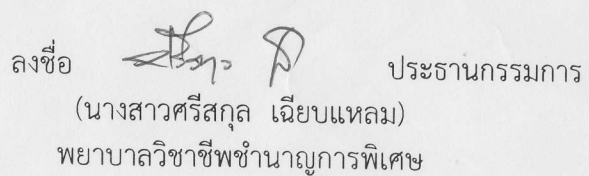 ลงชื่อ ประธานกรรมการ
(นางสาวศรีสกุล เฉียบแหลม)
พยาบาลวิชาชีพชำนาญการพิเศษ